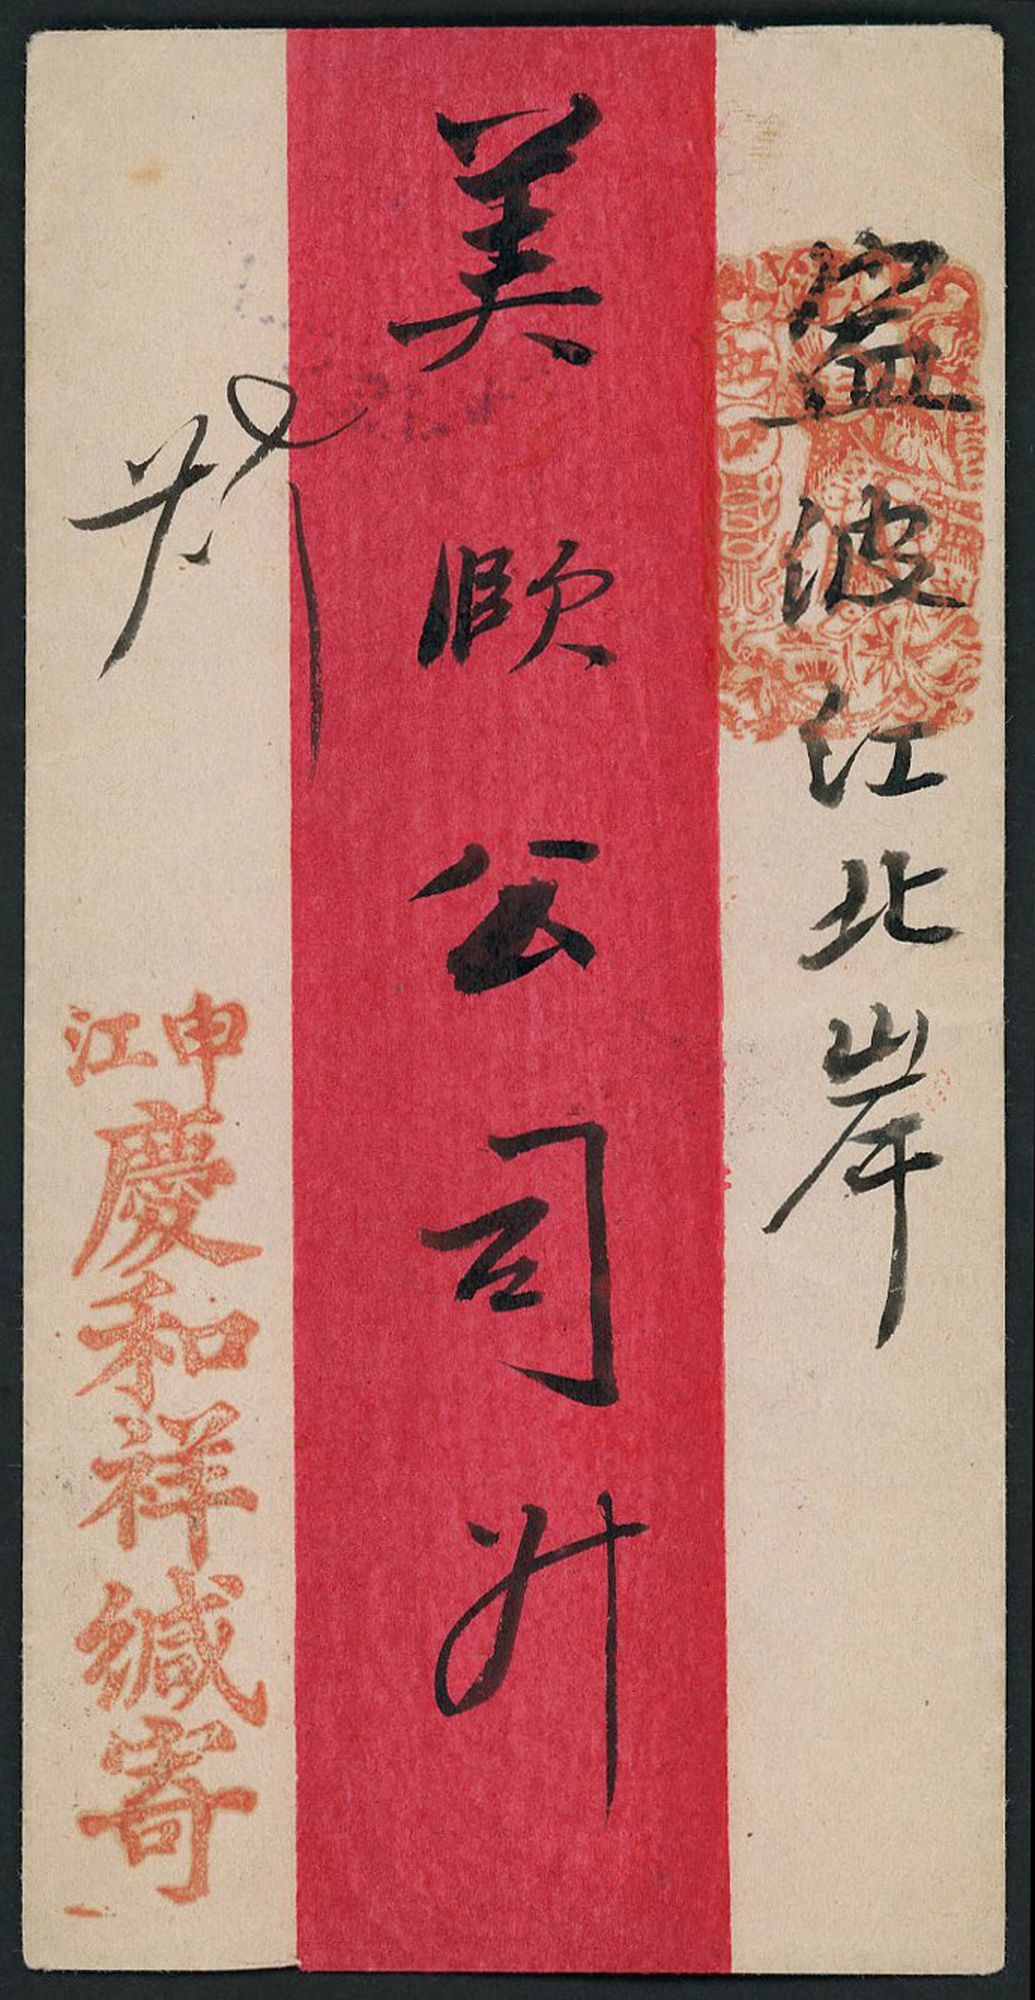 寍波江北岸
美頤公司升
申江
慶和祥緘寄